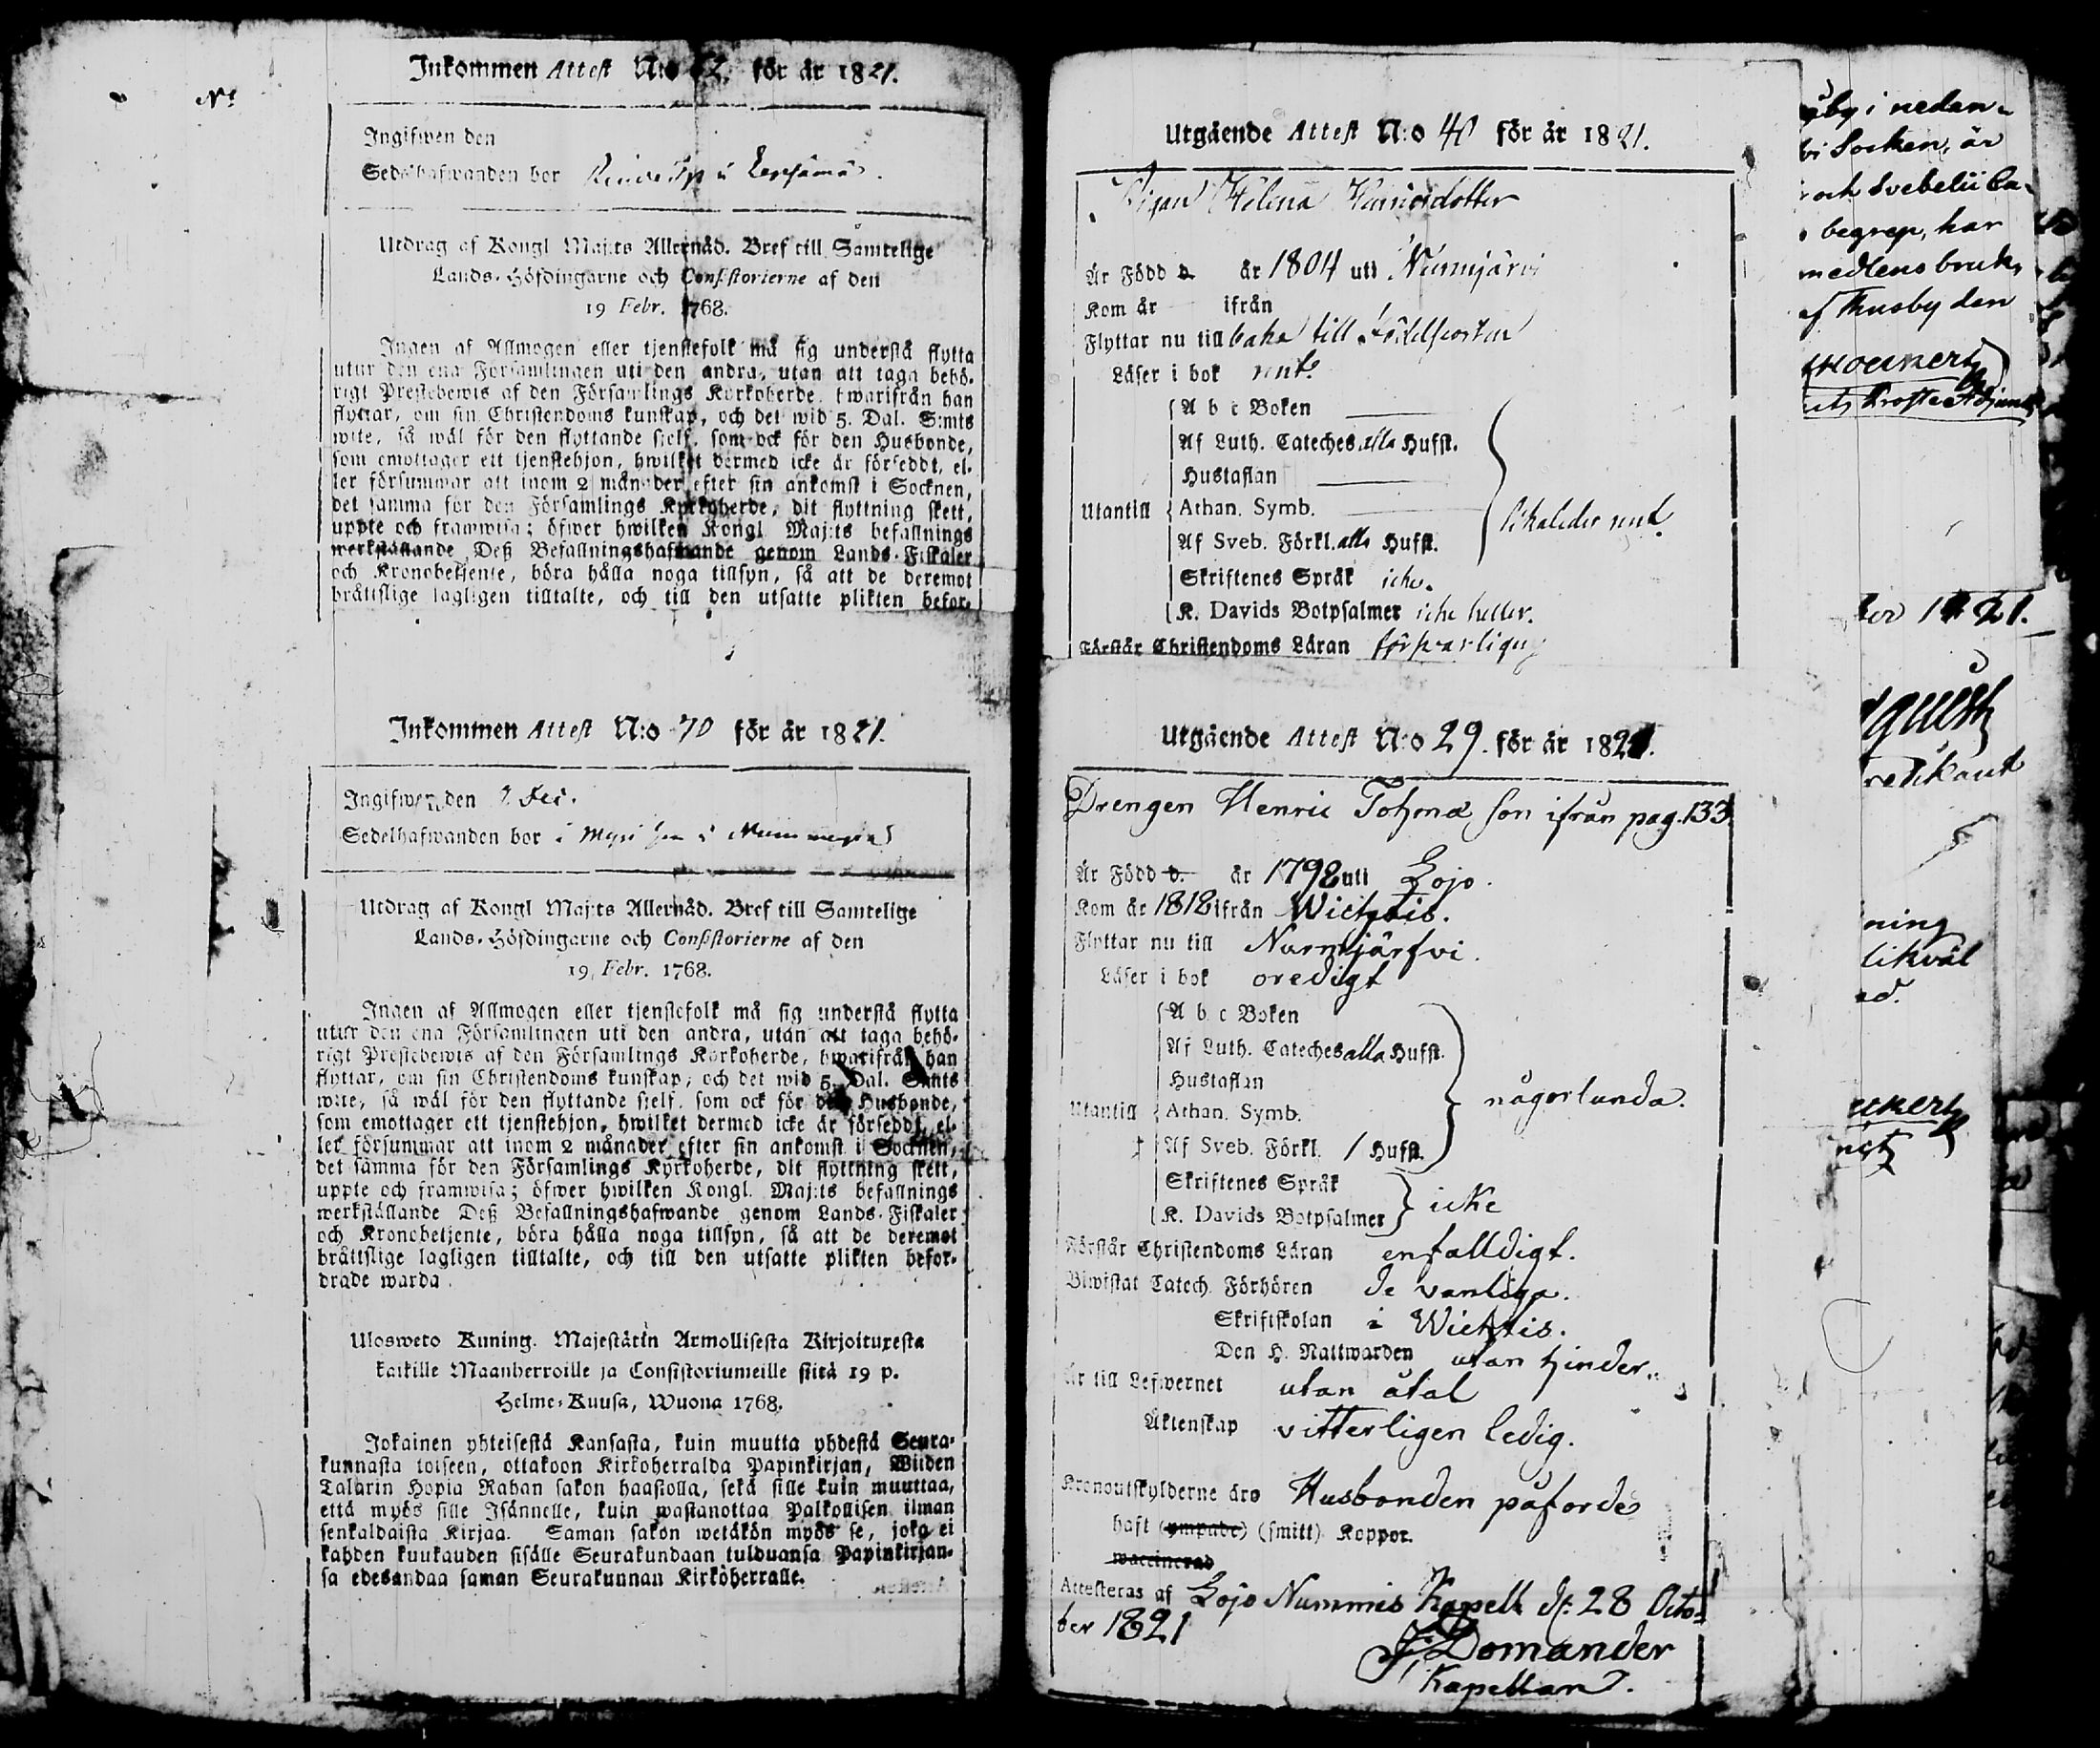 Inkommen Attest N:o 62. för år 1821.
N:o
Ingifwen den
Sedelhafwanden bor i Lepsämä.
Utdrag af Kongl Maj:ts Allernåd. Bref till Samtelige
Lands-Höfdingarne och Consistorierne af den
19 Febr. 1768.
Ingen af Allmogen eller tjenstefolk må sig understå flytta
utur den ena Församlingen uti den andra, utan att taga behö-
rigt Prestebewis af den Församlings Kyrkoherde, hwarifrån han
flyttar, om sin Christendoms kunskap, och det wid 5. Dal. S:mts
wite, så wäl för den flyttande sjelf, som ock för den Husbonde,
som emottager ett tjenstehjon, hwilket dermed icke är försedt, el-
ler försummar att inom 2 månader efter sin ankomst i Socknen,
det samma för den Församlings Kyrkoherde, dit flyttning skett,
uppte och framwisa; öfwer hwilken Kongl Maj:ts befallnings
werkställande Deß Befallningshafwande genom Lands-Fiskaler
och Kronobetjente, böra hålla noga tillsyn, så att de deremot
bråttslige lagligen tilltalte, och till den utsatte plikten befor-
Inkommen Attest N:o 70 för år 1821.
Ingifwen den 2 Dec.
Sedelhafwanden bor i
Utdrag af Kongl Maj:ts Allernåd. Bref till Samtelige
Lands-Höfdingarne och Consistorierne af den
19 Febr. 1768.
Ingen af Allmogen eller tjenstefolk må sig understå flytta
utur den ena Församlingen uti den andra, utan att taga behö-
rigt Prestebewis af den Församlings Kyrkoherde, hwarifrån han
flyttar, om sin Christendoms kunskap, och det wid 5. Dal. S:mts
wite, så wäl för den flyttande sjelf, som ock för den Husbonde,
som emottager ett tjenstehjon, hwilket dermed icke är försedt, el-
ler försummar att inom 2 månader efter sin ankomst i Socknen,
det samma för den Församlings Kyrkoherde, dit flyttning skett,
uppte och framwisa; öfwer hwilken Kongl. Maj:ts befallnings
werkställande Deß Befallningshafwande genom Lands-Fiskaler
och Kronobetjente, böra hålla noga tillsyn, så att de deremot
bråttslige lagligen tilltalte, och till den utsatte plikten befor-
drade warda.
Ulosweto Kuning. Majestätin Armollisesta Kirjoituxesta
kaikille Maanherroille ja Consistoriumeille siitä 19 p.
Helme-Kuusa, Wuona 1768.
Jokainen yhteisestä Kansasta, kuin muutta yhdestä Seura-
kunnasta toiseen, ottakoon Kirkoherralda Papinkirjan, Wiiden
Talarin Hopia Rahan sakon haastolla, sekä sille kuin muuttaa,
että myös sille Isännelle, kuin wastanottaa Palkollisen ilman
senkaldaista Kirjaa. Saman sakon wetäkön myös se, joka ei
kahden kuukauden sisälle Seurakundaan tulduansa Papinkirjan-
sa edesandaa saman Seurakunnan Kirkoherralle.
Utgående Attest N:o 40 för år 1821.
Pigan Helena Henricsdotter
Är Född d. år 1804 uti Nurmijärvi
Kom år ifrån
Flyttar nu till baka till Födelseorten
Läser i bok rent
A b c Boken
Af Luth. Cateches alla Hufst.
Hustaflan
Utantill Athan. Symb. likaledes rent
Af Sveb. Förkl. alla Hufst.
Skriftenes Språk icke.
K. Davids Botpsalmer icke heller.
Förstår Christendoms Läran försvarligen
Utgående Attest N:o 29. för år 1821.
Drengen Henric Tohmæ son ifrån pag. 133
Är Född d. år 1798 uti Lojo.
Kom år 1818 ifrån Wichtis.
Flyttar nu till Nurmijärfvi.
Läser i bok oredigt
A b c Boken
Af Luth. Cateches alla Hufst.
Hustaflan någorlunda.
Utantill Athan. Symb.
Af Sveb. Förkl. 1 Hufst.
Skriftenes Språk
K. Davids Botpsalmer icke
Förstår Christendoms Läran enfalldigt.
Biwistat Catech. Förhören de vanliga.
Skriftskolan i Wichtis.
Den H. Nattwarden utan hinder.
Är till Lefwernet utan åtal
Äktenskap vitterligen ledig.
Kronoutskylderne äro Husbonden påförde
haft (ympade) (smitt) Koppor.
waccinerad
Attesteras af Lojo Nummis Kapell d: 28 Octo-
ber 1821
J, Domander
Kapellan.
by i nedan-
Socken, är
och Svebelii Ca-
begrep, har
medlens bruk,
af Thusby den
ber 1821.
ning
likväl